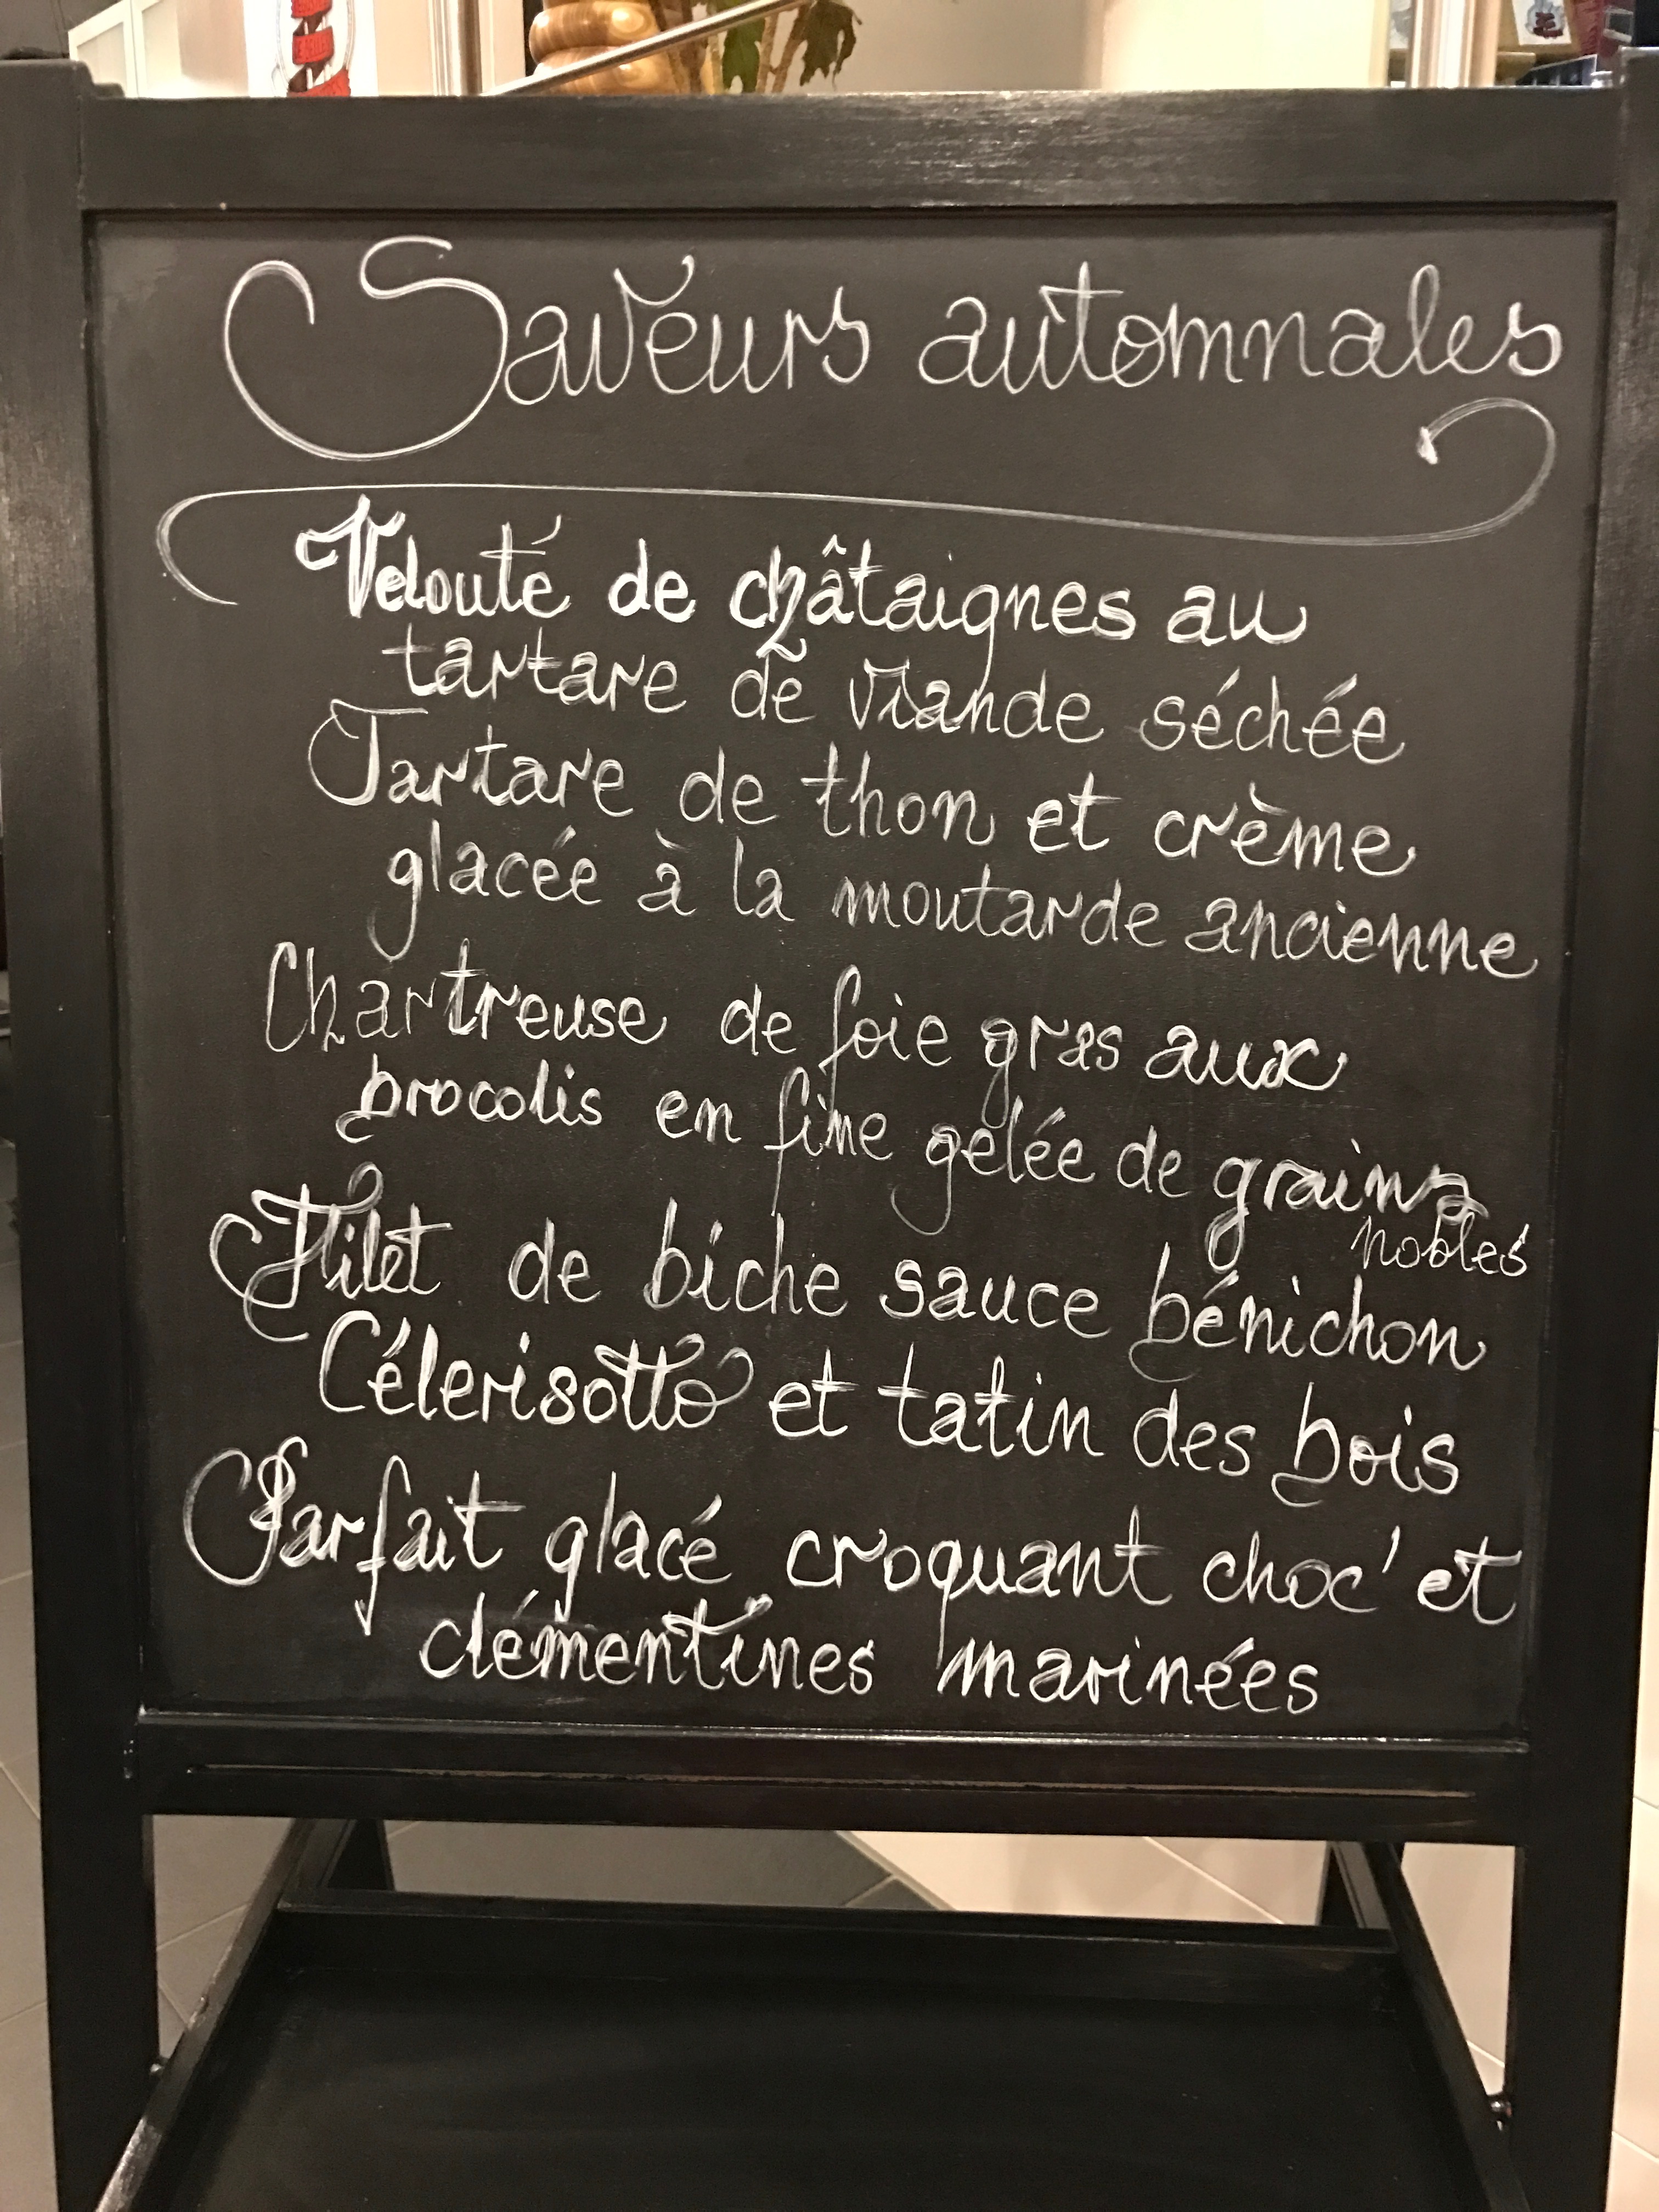 Saveurs automnales
Velouté de châtaignes au
tartare de viande séchée
Tartare de thon et crème
glacée à la moutarde ancienne
Chartreuse de foie gras aux
brocolis en fine gelée de grains
nobles
Filet de biche sauce bénichon
Célerisotto et tatin des bois
Parfait glacé croquant choc' et
clémentines marinées